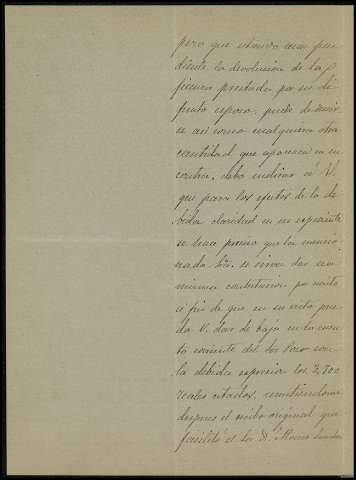 pero que estando aun pen
diente la devolucion de la
fianza prestada por su di
funto esposo, puede deducir
se asi como cualquiera otra
cantidad que aparezca en su
contra, debo indicar á V.
que para los efectos de la de
bida claridad en su expediente
se hace preciso que la mencio
nada Sra. se sirva dar una
misma contestacion por escrito
á fin de que en su vista pue
da V. dar de baja en la cuen
ta corriente del Sor
la debida expresion los 3,700
reales citados, remitiendome
despues el recibo original que
facilitó el Sor D.